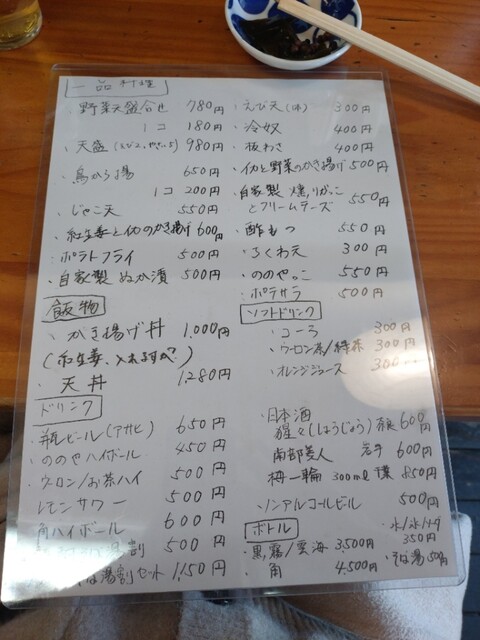 一品料理
・野菜天盛合せ 780円
1コ 180円
・天盛(えび2、やさい5) 980円
・鳥から揚 650円
1コ 200円
・じゃこ天 550円
・紅生姜とイカのかき揚げ 600円
・ポテトフライ 500円
・自家製 ぬか漬 500円
・えび天(1本) 300円
・冷奴 400円
・板わさ 400円
・イカと野菜のかき揚げ 500円
・自家製 燻りがっことクリームチーズ 550円
・酢もつ 550円
・ちくわ天 300円
・ののやっこ 550円
・ポテサラ 500円
飯物
・かき揚げ丼 1,000円
(紅生姜、入れますか?)
・天丼 1,280円
ソフトドリンク
・コーラ 300円
・ウーロン茶/緑茶 300円
・オレンジジュース 300円
ドリンク
・瓶ビール(アサヒ) 650円
・ののやハイボール 450円
・ウーロン/お茶ハイ 500円
レモンサワー 500円
角ハイボール 600円
湯割 500円
湯割セット 1,150円
・日本酒
猩々(しょうじょう) 奈良 600円
南部美人 岩手 600円
梅一輪 300ml 千葉 850円
・ノンアルコールビール 500円
ボトル
・黒霧/雲海 3,500円
・角 4,500円
・水/氷/
350円
・そば湯 500円